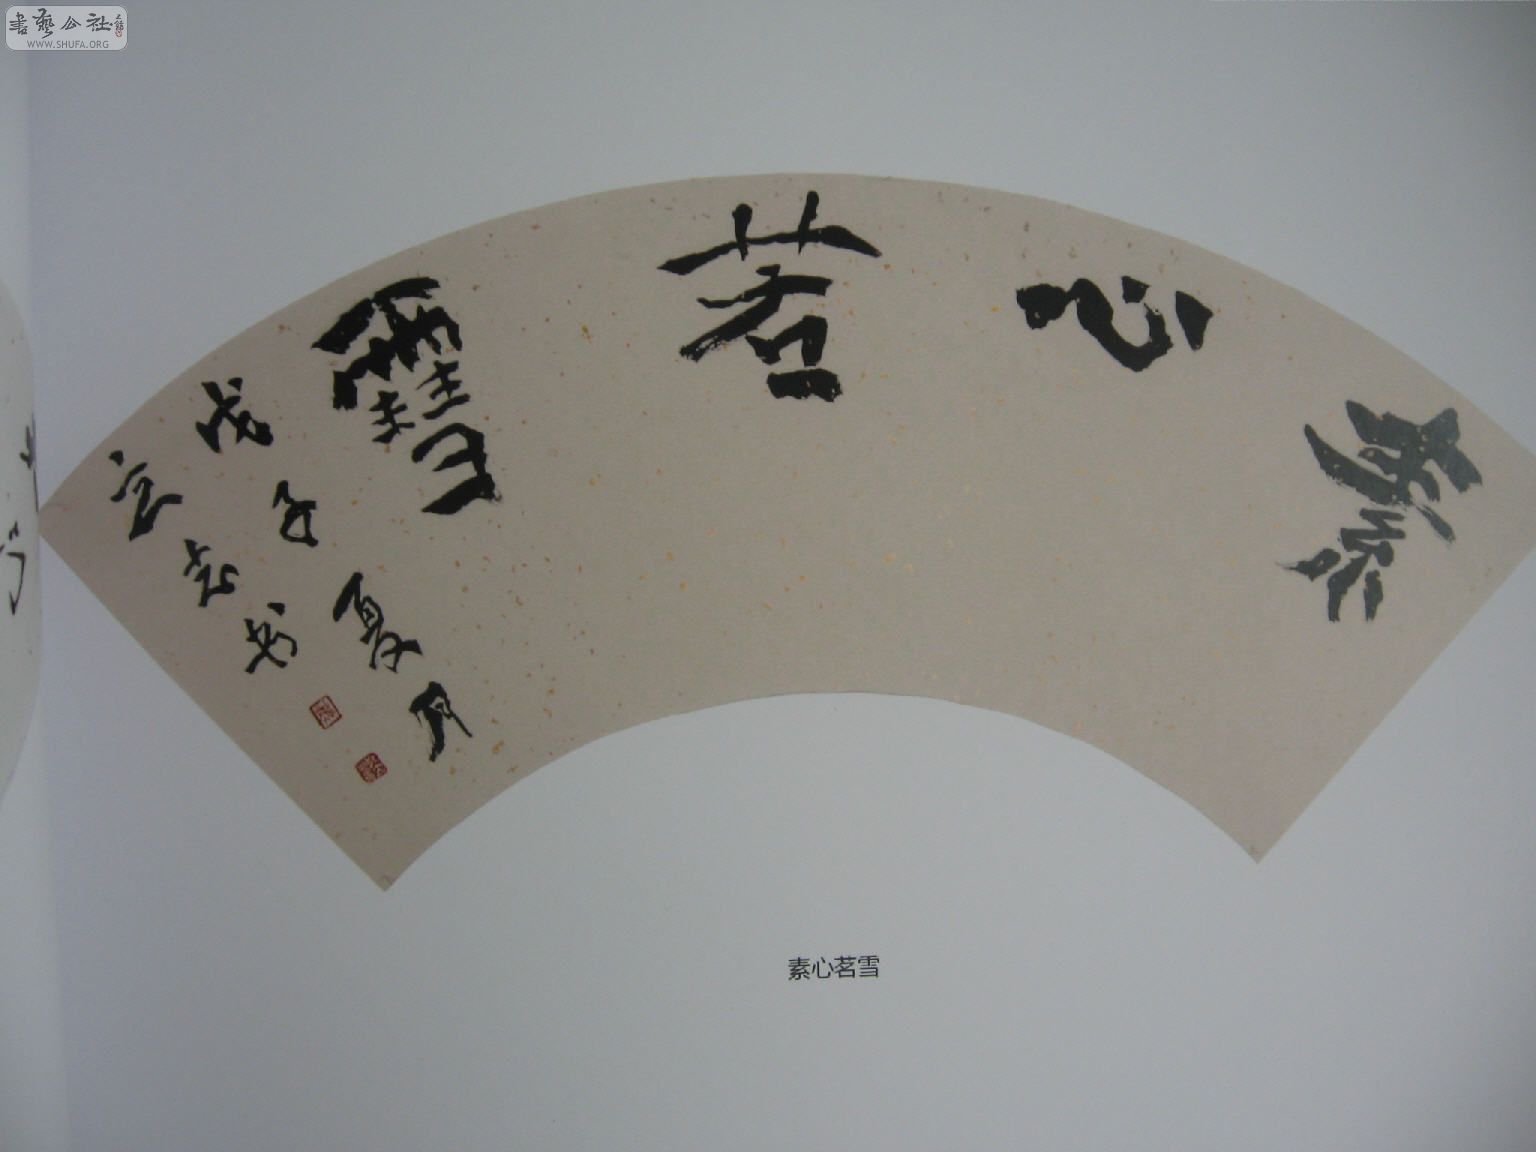 書藝公社
WWW.SHUFA.ORG
素心茗雪
戊子夏月
素心茗雪